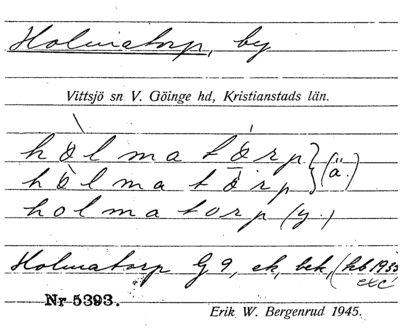 Holmatorp, by
Vittsjö sn V. Göinge hd, Kristianstads län.
hòlmatórp } (ä.)
hòlmatōrp
holmatorp (y.)
Holmatorp G 9, ek, bek, (hb 1933
exc.
Nr 5393.
Erik W. Bergenrud 1945.